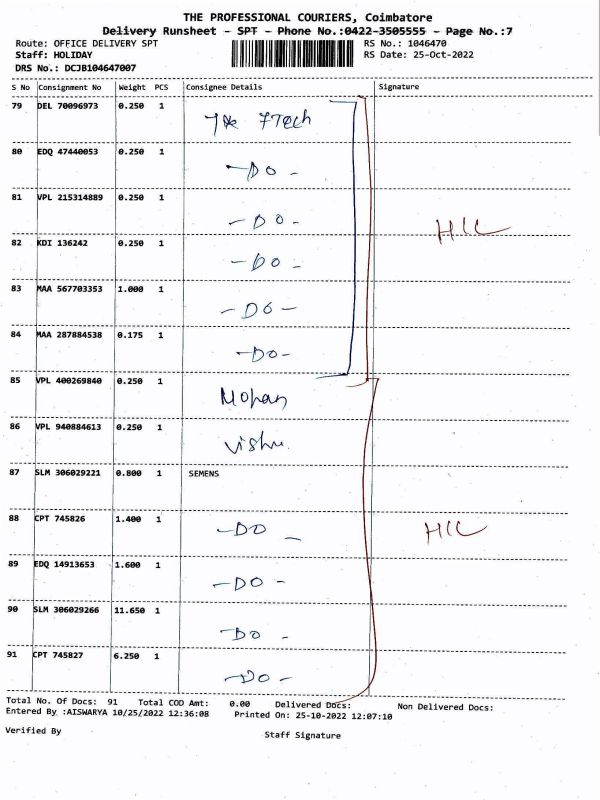 THE PROFESSIONAL COURIERS, Coimbatore
Delivery Runsheet - SPT - Phone No.:0422-3505555 - Page No.:7
Route: OFFICE DELIVERY SPT RS No.: 1046470
Staff: HOLIDAY RS Date: 25-Oct-2022
DRS No.: DCJB104647007
S No Consignment No Weight PCS Consignee Details Signature
79 DEL 70096973 0.250 1
80 EDQ 47440053 0.250 1 -DO-
81 VPL 215314889 0.250 1 -DO-
82 KDI 136242 0.250 1 -DO-
83 MAA 567703353 1.000 1 -DO-
84 MAA 287884538 0.175 1 -DO-
85 VPL 400269840 0.250 1 Mohan
86 VPL 940884613 0.250 1 Vishu.
87 SLM 306029221 0.800 1 SEMENS
88 CPT 745826 1.400 1 -DO-
89 EDQ 14913653 1.600 1 -DO-
90 SLM 306029266 11.650 1 -DO-
91 CPT 745827 6.250 1 -DO-
Total No. Of Docs: 91 Total COD Amt: 0.00 Delivered Docs: Non Delivered Docs:
Entered By :AISWARYA 10/25/2022 12:36:08 Printed On: 25-10-2022 12:07:10
Verified By Staff Signature